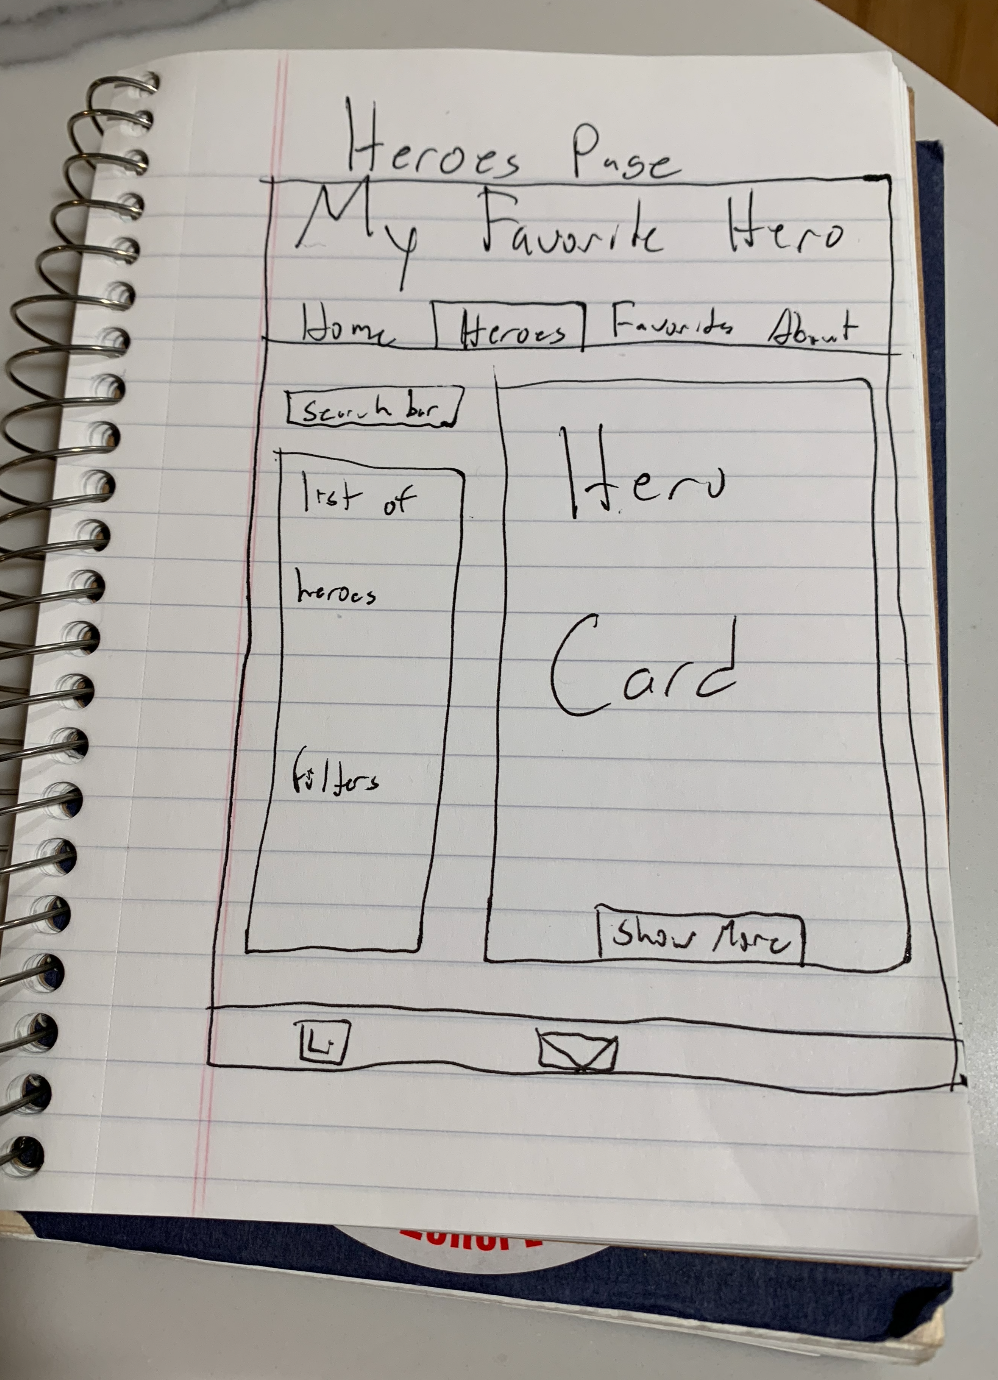 Heroes Page
My Favorite Hero
Home Heroes Favorites About
Search bar
list of
heroes
filters
Hero
Card
Show More